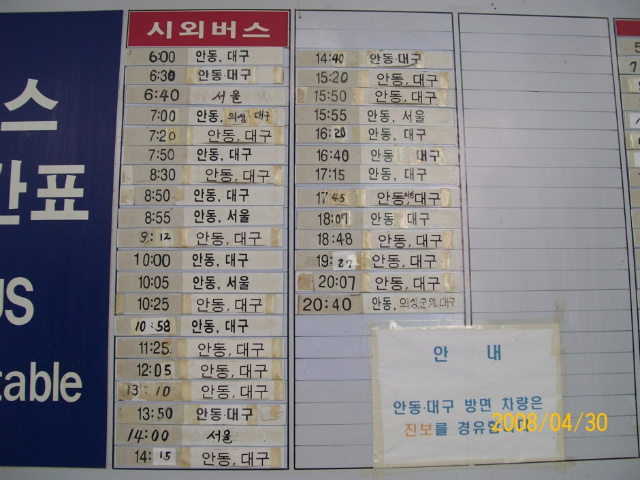 스
간표
US
table
시외버스
6:00 안동, 대구
6:30 안동·대구
6:40 서울
7:00 안동, 의성 대구
7:20 안동, 대구
7:50 안동, 대구
8:30 안동, 대구
8:50 안동, 대구
8:55 안동, 서울
9:12 안동, 대구
10:00 안동, 대구
10:05 안동, 서울
10:25 안동, 대구
10:58 안동, 대구
11:25 안동, 대구
12:05 안동, 대구
13:10 안동, 대구
13:50 안동·대구
14:00 서울
14:15 안동, 대구
14:40 안동·대구
15:20 안동, 대구
15:50 안동, 대구
15:55 안동, 서울
16:20 안동, 대구
16:40 안동 대구
17:15 안동, 대구
17:45 안동, 대구
18:07 안동, 대구
18:48 안동, 대구
19:27 안동, 대구
20:07 안동, 대구
20:40 안동, 의성,군위,대구
안 내
안동·대구 방면 차량은
진보를 경유합니다
2008/04/30